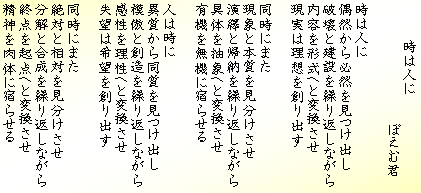 時は人に
ぽえむ君
時は人に
偶然から必然を見つけ出し
破壊と建設を繰り返しながら
内容を形式へと変換させ
現実は理想を創り出す
同時にまた
現象と本質を見分けさせ
演繹と帰納を繰り返しながら
具体を抽象へと変換させ
有機を無機に宿らせる
人は時に
異質から同質を見つけ出し
模倣と創造を繰り返しながら
感性を理性へと変換させ
失望は希望を創り出す
同時にまた
絶対と相対を見分けさせ
分解と合成を繰り返しながら
終点を起点へと変換させ
精神を肉体に宿らせる